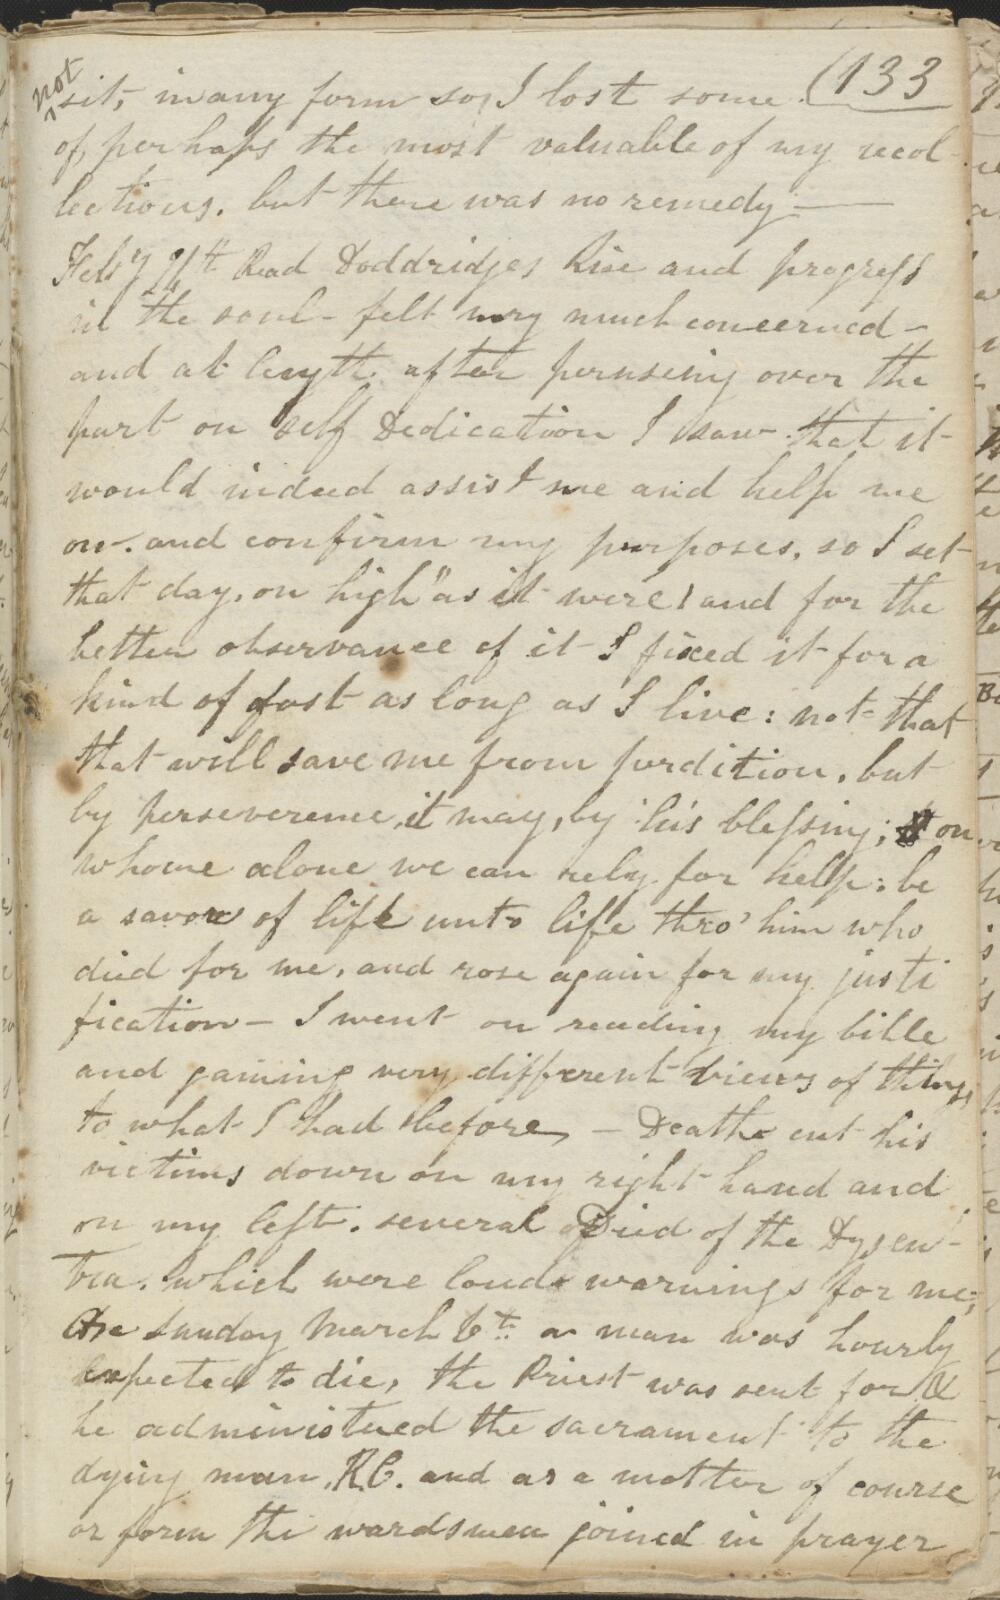 (133
not
sit, in any form so, I lost some
of, perhaps the most valuable of my recol
lections. but there was no remedy —
Feby 11th Read Doddridges Rise and progress
in the soul - felt very much concerned -
and at length after perusing over the
part on self Dedication I saw that it
would indeed assist me and help me
on. and confirm my purposes, so I set
that day, on high" as it were! and for the
better observance of it I fixed it for a
kind of fast as long as I live: not that
that will save me from perdition, but
by perseverence, it may, by his blessing; on
whome alone we can rely for help: be
a savour of life unto life thro' him who
died for me, and rose again for my justi
fication - I went on reading my bible
and gaining very different views of things
to what I had before, - Death cut his
victims down on my right hand and
on my left. several Died of the Dysen-
tra. which were loud warnings for me;
One Sunday March 6th a man was hourly
expected to die, the Priest was sent for &
he administered the sacrament to the
dying man, R.C. and as a matter of course
or form the wardsmen joined in prayer